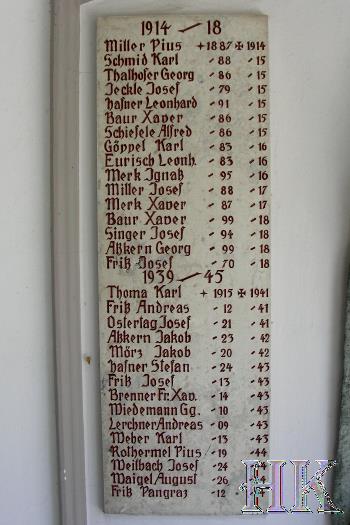 1914 — 18
Miller Pius +1887 ✠ 1914
Schmid Karl - 88 - 15
Thalhofer Georg - 86 - 15
Jeckle Josef - 79 - 15
Hafner Leonhard - 91 - 15
Baur Xaver - 86 - 15
Schiefele Alfred - 86 - 15
Göppel Karl - 83 - 16
Eurisch Leonh. - 83 - 16
Merk Ignatz - 95 - 16
Miller Josef - 88 - 17
Merk Xaver - 87 - 17
Baur Xaver - 99 - 18
Singer Josef - 94 - 18
Atzkern Georg - 99 - 18
Fritz Josef - 70 - 18
1939 — 45
Thoma Karl + 1915 ✠ 1941
Fritz Andreas - 12 - 41
Ostertag Josef - 21 - 41
Atzkern Jakob - 23 - 42
März Jakob - 20 - 42
Hafner Stefan - 24 - 43
Fritz Josef - 13 - 43
Brenner Fr. Xav. - 14 - 43
Wiedemann Gg. - 10 - 43
Lerchner Andreas - 09 - 43
Weber Karl - 13 - 43
Rothermel Pius - 19 - 44
Josef - 24
Maigel August - 26
Fritz Pangraz - 12
HK